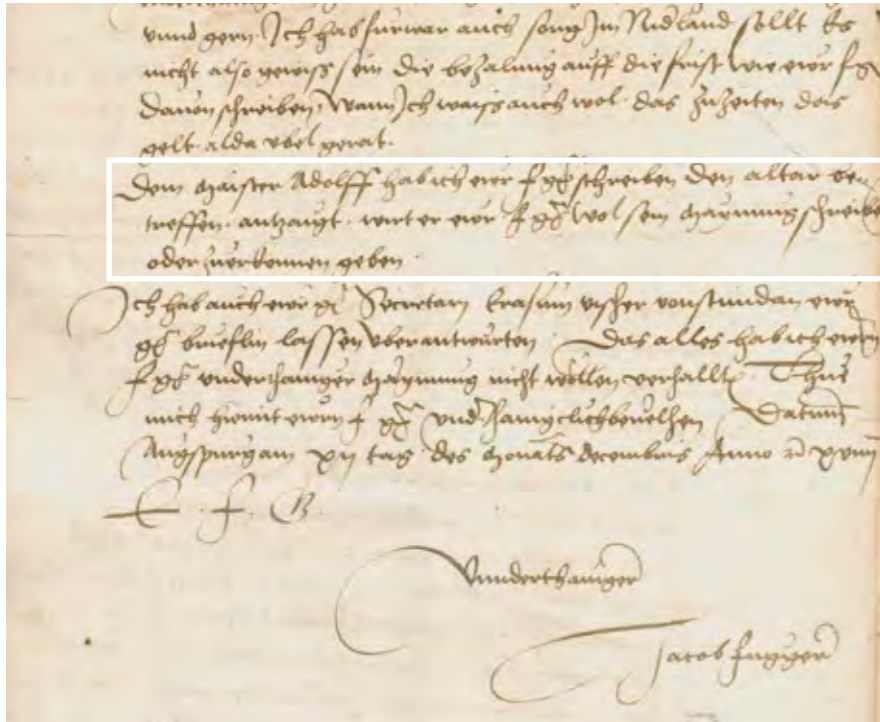 vnnd gern. Jch hab furwar auch sorg Jn Niderland sollt Es
nicht also gewiss sein die bezalung auff die frist wie ewr f g
dauon schreiben, Wann Jch waiss auch wol das zuzeiten das
gelt alda vbel gerat.
Dem maister Adolff hab ich ewr f gn schreiben den altar be-
treffen. antzaigt. wirt er ewr f gn wol sein maynung schreiben
oder zuerkennen geben.
Jch hab auch ewr gn Secretarn Erasim vischer vonstundan ewr
gn brieflin lassen vberantwurten. Das alles hab ich ewrn
f gn vnderthaniger maynung nicht wollen verhallten. Thue
mich hiemit ewrn f gn vnderthaniclich beuelhen Datum
Augspurg am xij tag des monats decembris Anno
E. f. G.
Vnnderthaniger
Jacob Fugger